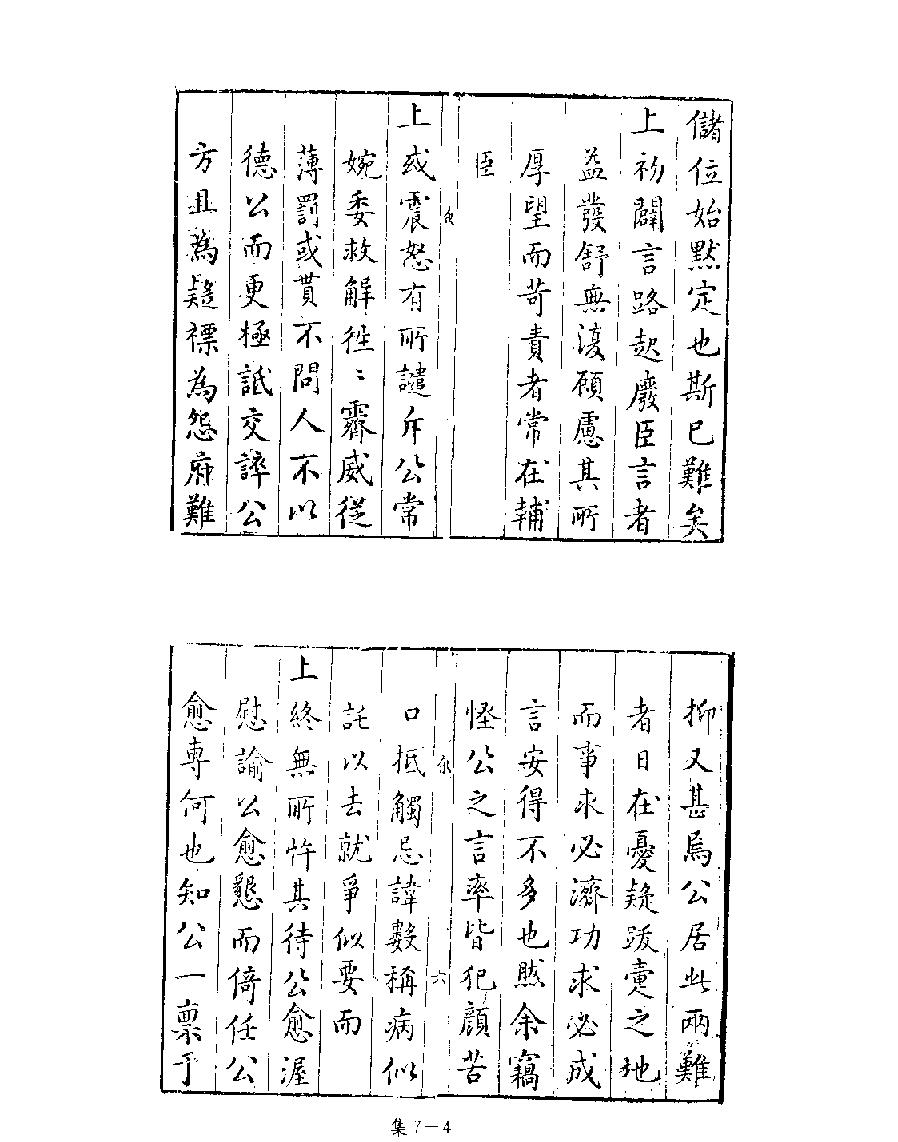 儲位始默定也斯已難矣
上初闢言路起廢臣言者
益發舒無復顧慮其所
厚望而苛責者常在輔
臣
上或震怒有所譴斥公常
婉委救解徃〻霽威從
薄罰或貰不問人不以
德公而更極詆交誶公
方且為疑標為怨府難
抑又甚焉公居此兩難
者日在憂疑跋疐之地
而事求必濟功求必成
言安得不多也然余竊
怪公之言率皆犯顏苦
口抵觸忌諱數稱病似
六
託以去就爭似要而
上終無所忤其待公愈渥
慰諭公愈懇而倚任公
愈專何也知公一稟于
集7－4